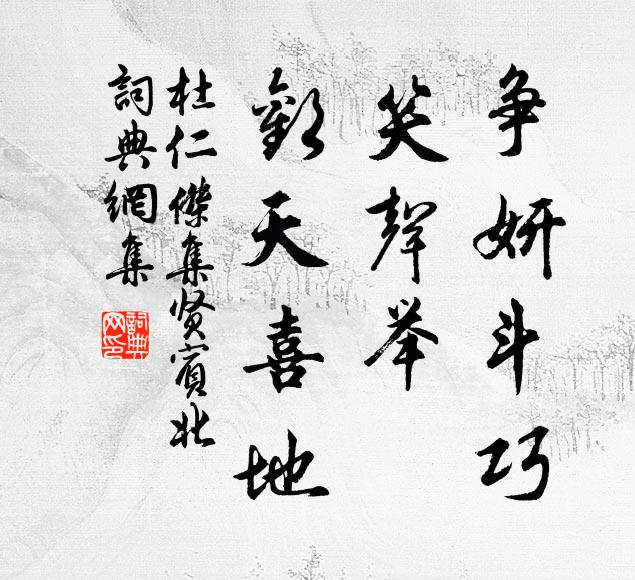 争妍斗巧
笑聲举
歡天喜地
杜仁傑集贤賓北
詞典網集
詞典网印